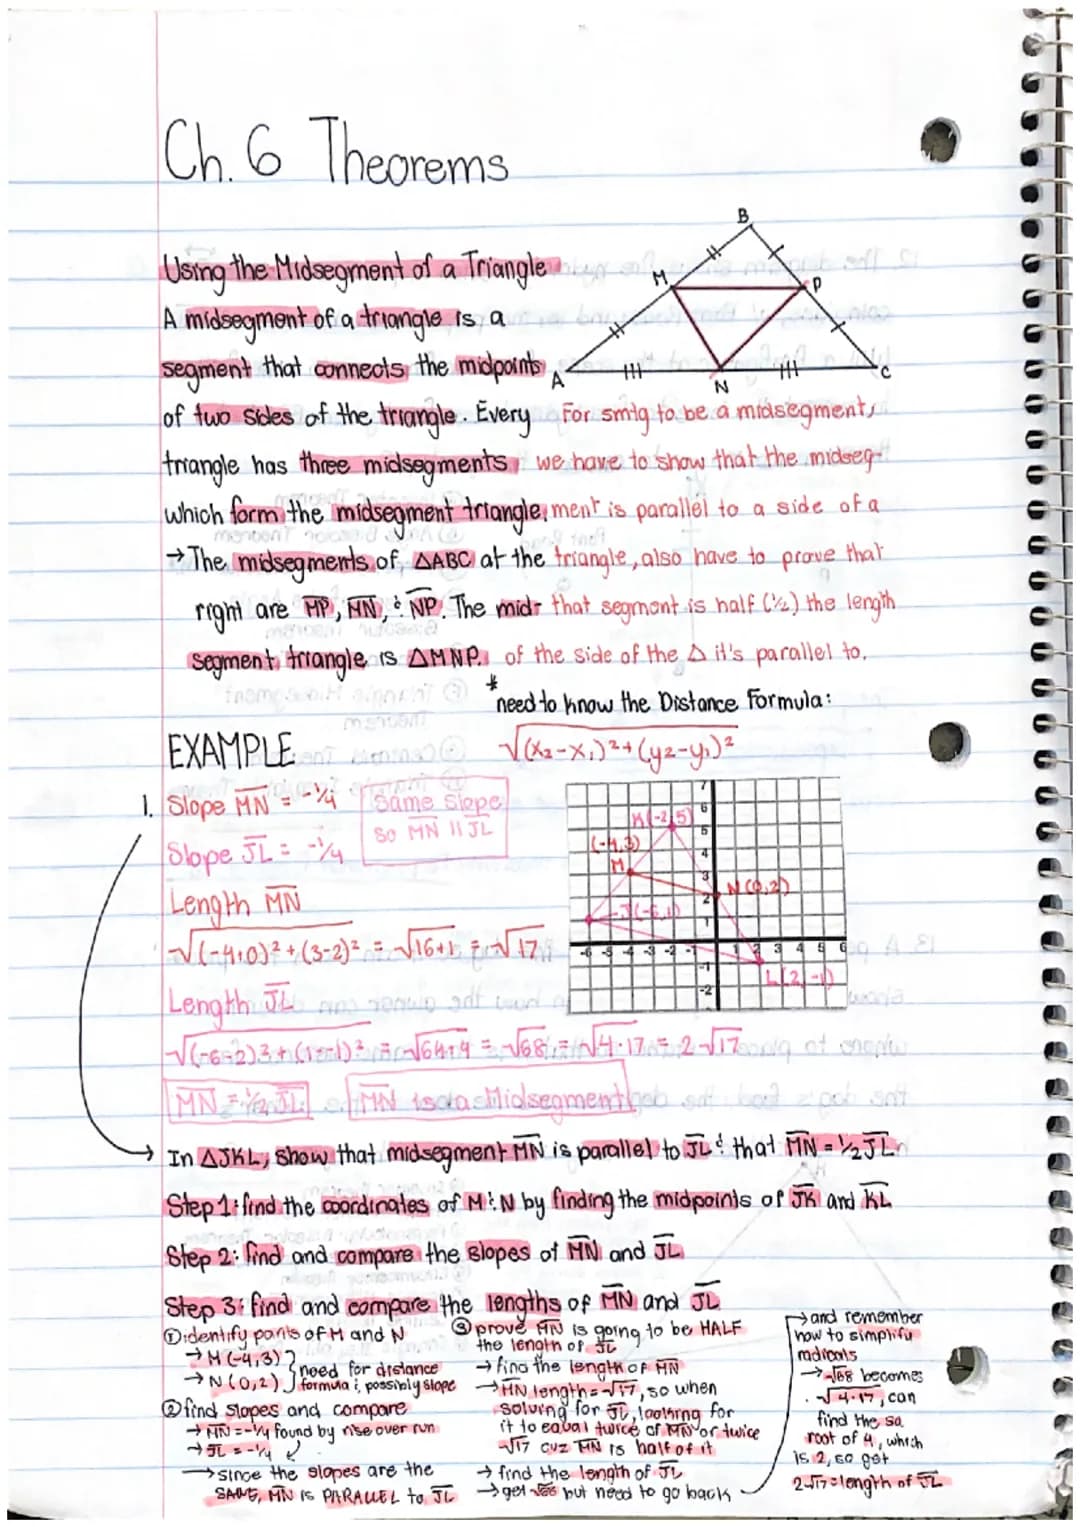 Ch. 6 Theorems
Using the Midsegment of a Triangle
A midsegment of a triangle is a
segment that connects the midpoints
of two sides of the triangle. Every
triangle has three midsegments,
which form the midsegment triangle.
→The midsegments of △ABC at the
right are MP, MN, & NP. The mid-
segment triangle is △MNP.
B
M
P
A
N
C
For smtg to be a midsegment,
we have to show that the midseg-
ment is parallel to a side of a
triangle, also have to prove that
that segment is half (½) the length
of the side of the △ it's parallel to.
*
need to know the Distance Formula:
√(x₂-x₁)²+(y₂-y₁)²
EXAMPLE
1. Slope MN = -¼
Slope JL = -¼
Same slope
so MN || JL
Length MN
√(-4+0)²+(3-2)² = √16+1 = √17
Length JL
√(-6-2)2+(1--1)² = √64+4 = √68 = √4·17 = 2√17
MN = ½ JL
MN is a Midsegment
K(-2,5)
(-4,3)
M
N(0,2)
J(-6,1)
L(2,-1)
7
6
5
4
3
2
1
-6 -5 -4 -3 -2 -1 1 2 3 4 5 6
-1
-2
In △JKL, show that midsegment MN is parallel to JL & that MN = ½JL
Step 1: find the coordinates of M & N by finding the midpoints of JK and KL
Step 2: find and compare the slopes of MN and JL
Step 3: find and compare the lengths of MN and JL
① identify points of M and N
→ M(-4,3)
→ N(0,2)
need for distance
formula &, possibly slope
② find slopes and compare
→ MN = -¼ found by rise over run
→ JL = -¼
→ since the slopes are the
SAME, MN is PARALLEL to JL
③ prove MN is going to be HALF
the length of JL
→ find the length of MN
→ MN length = √17, so when
solving for JL, looking for
it to equal twice of MN or twice
√17 cuz MN is half of it
→ find the length of JL
→ get √68 but need to go back
→ and remember
how to simplify
radicals
→ √68 becomes
√4·17, can
find the sq.
root of 4, which
is 2, so get
2√17 = length of JL